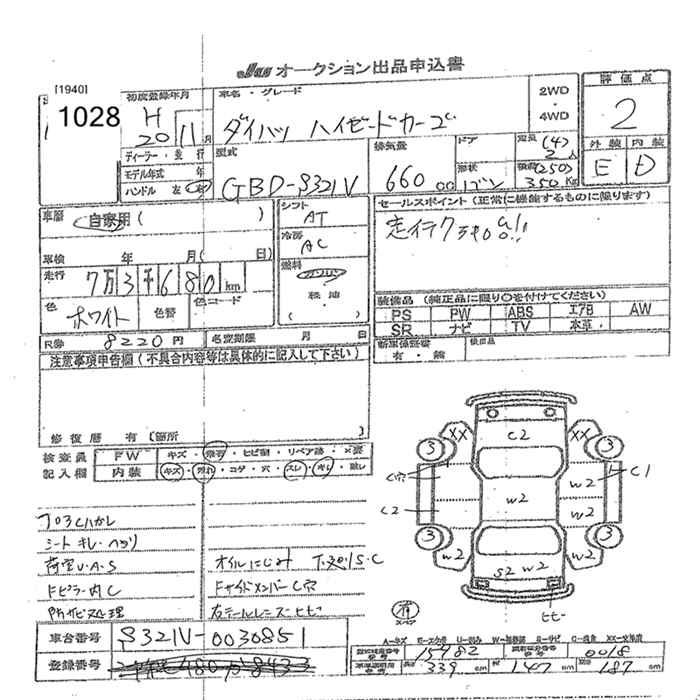 オークション出品申込書
[1940]
1028
初度登録年月
H
20 11月
車名・グレード
ダイハツ ハイゼットカーゴ
2WD
・
4WD
評価点
2
外装 内装
E D
ディーラー・並行
モデル年式 年
ハンドル 左・右
型式
GBD-S321V
排気量
660 cc
ドア
形状
バン
定員 (4)
2人
積載 (250)
350 Kg
車歴 自家用 ( )
シフト
AT
冷房
AC
燃料
ガソリン
軽油
車検 年 月( 日)
走行 7万3千680 km
色 ホワイト 色替 色コード
R券 8220円 名変期限 月 日
セールスポイント (正常に機能するものに限ります)
走行7万キロ!!
装備品 (純正品に限り○を付けてください)
PS PW ABS エアB AW
SR ナビ TV 本革
新車保証書 有・無 検出品
注意事項申告欄 (不具合内容等は具体的に記入して下さい)
修復歴 有 (箇所
検査員 FW キズ・飛石・ヒビ割・リペア跡・×要
記入欄 内装 キズ・汚れ・コゲ・穴・スレ・キレ・破レ
シート キレ・ヘタリ
荷室U.A.S
オイルにじみ
Fサイドメンバー C穴
右テールレンズ・ヒビ
XX C2 XX
3 3
C穴 C1
W2
C2 W2 W2
3 3
W2 W2
S2 W2
ヒビ
有
スペア
A-キズ E-エクボ U-凹み W-補修跡 S-サビ C-腐食 XX-交換済
車台番号 S321V-0030851
登録番号
15482 0018
長さ 339 cm 幅 147 cm 高さ 187 cm